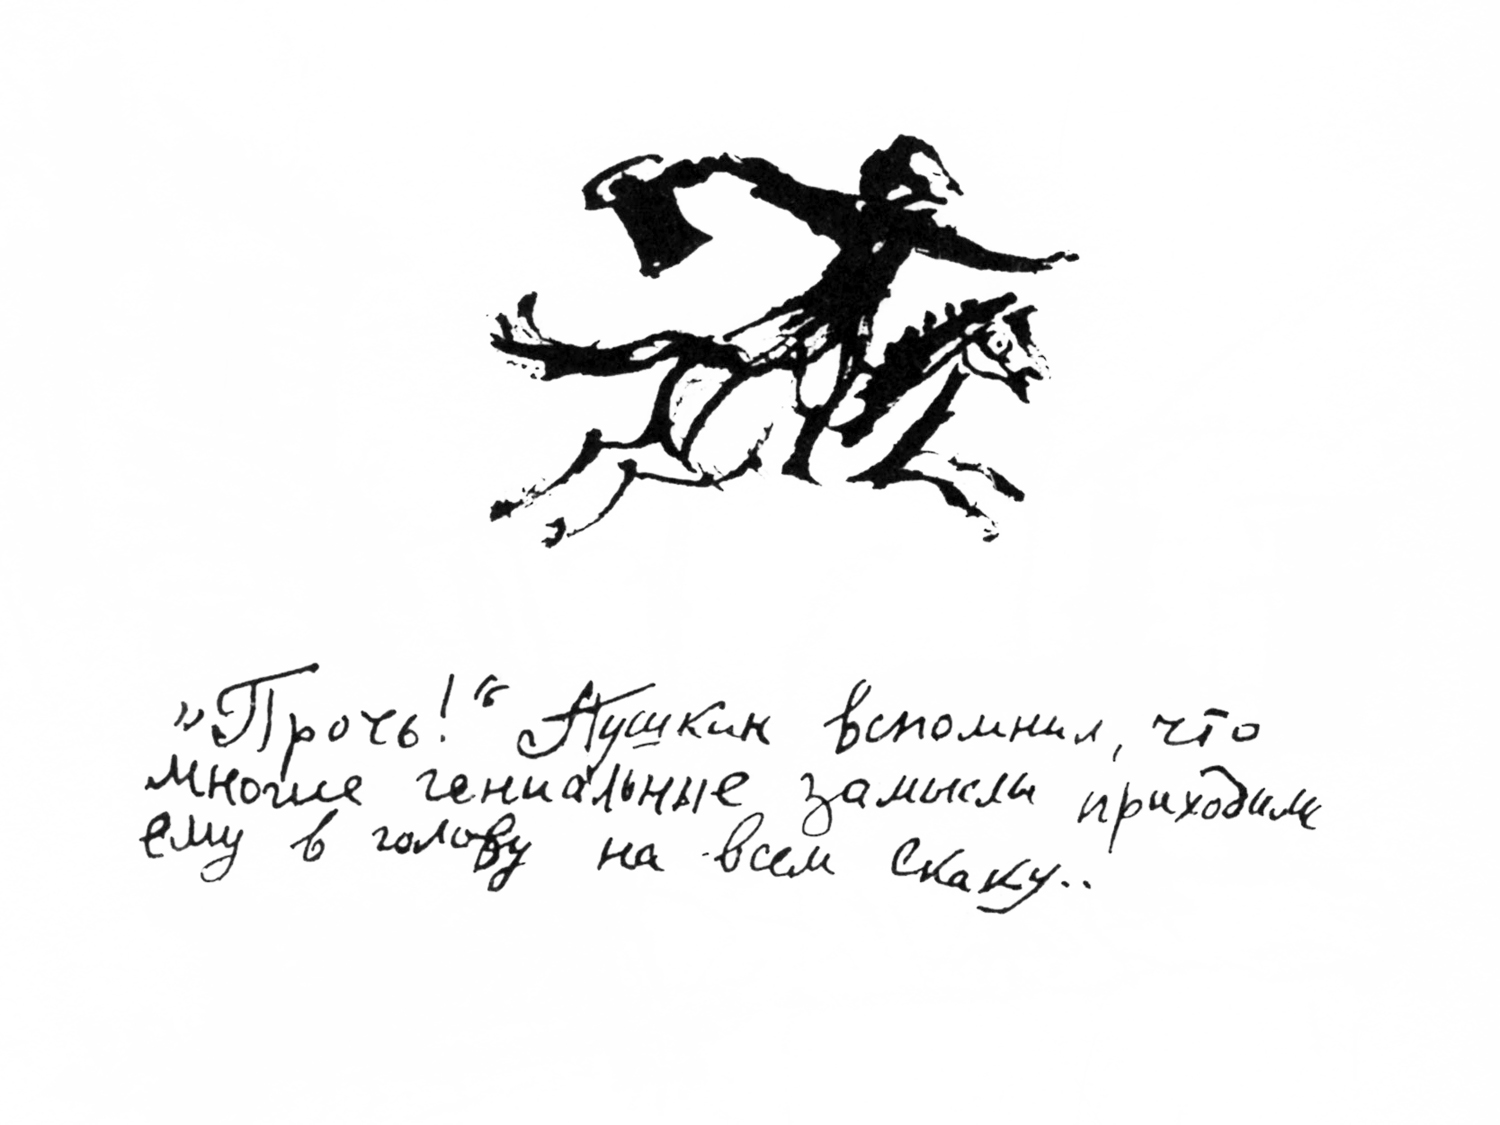 „Прочь!“ Пушкин вспомнил, что
многие гениальные замыслы приходили
ему в голову на всем скаку..